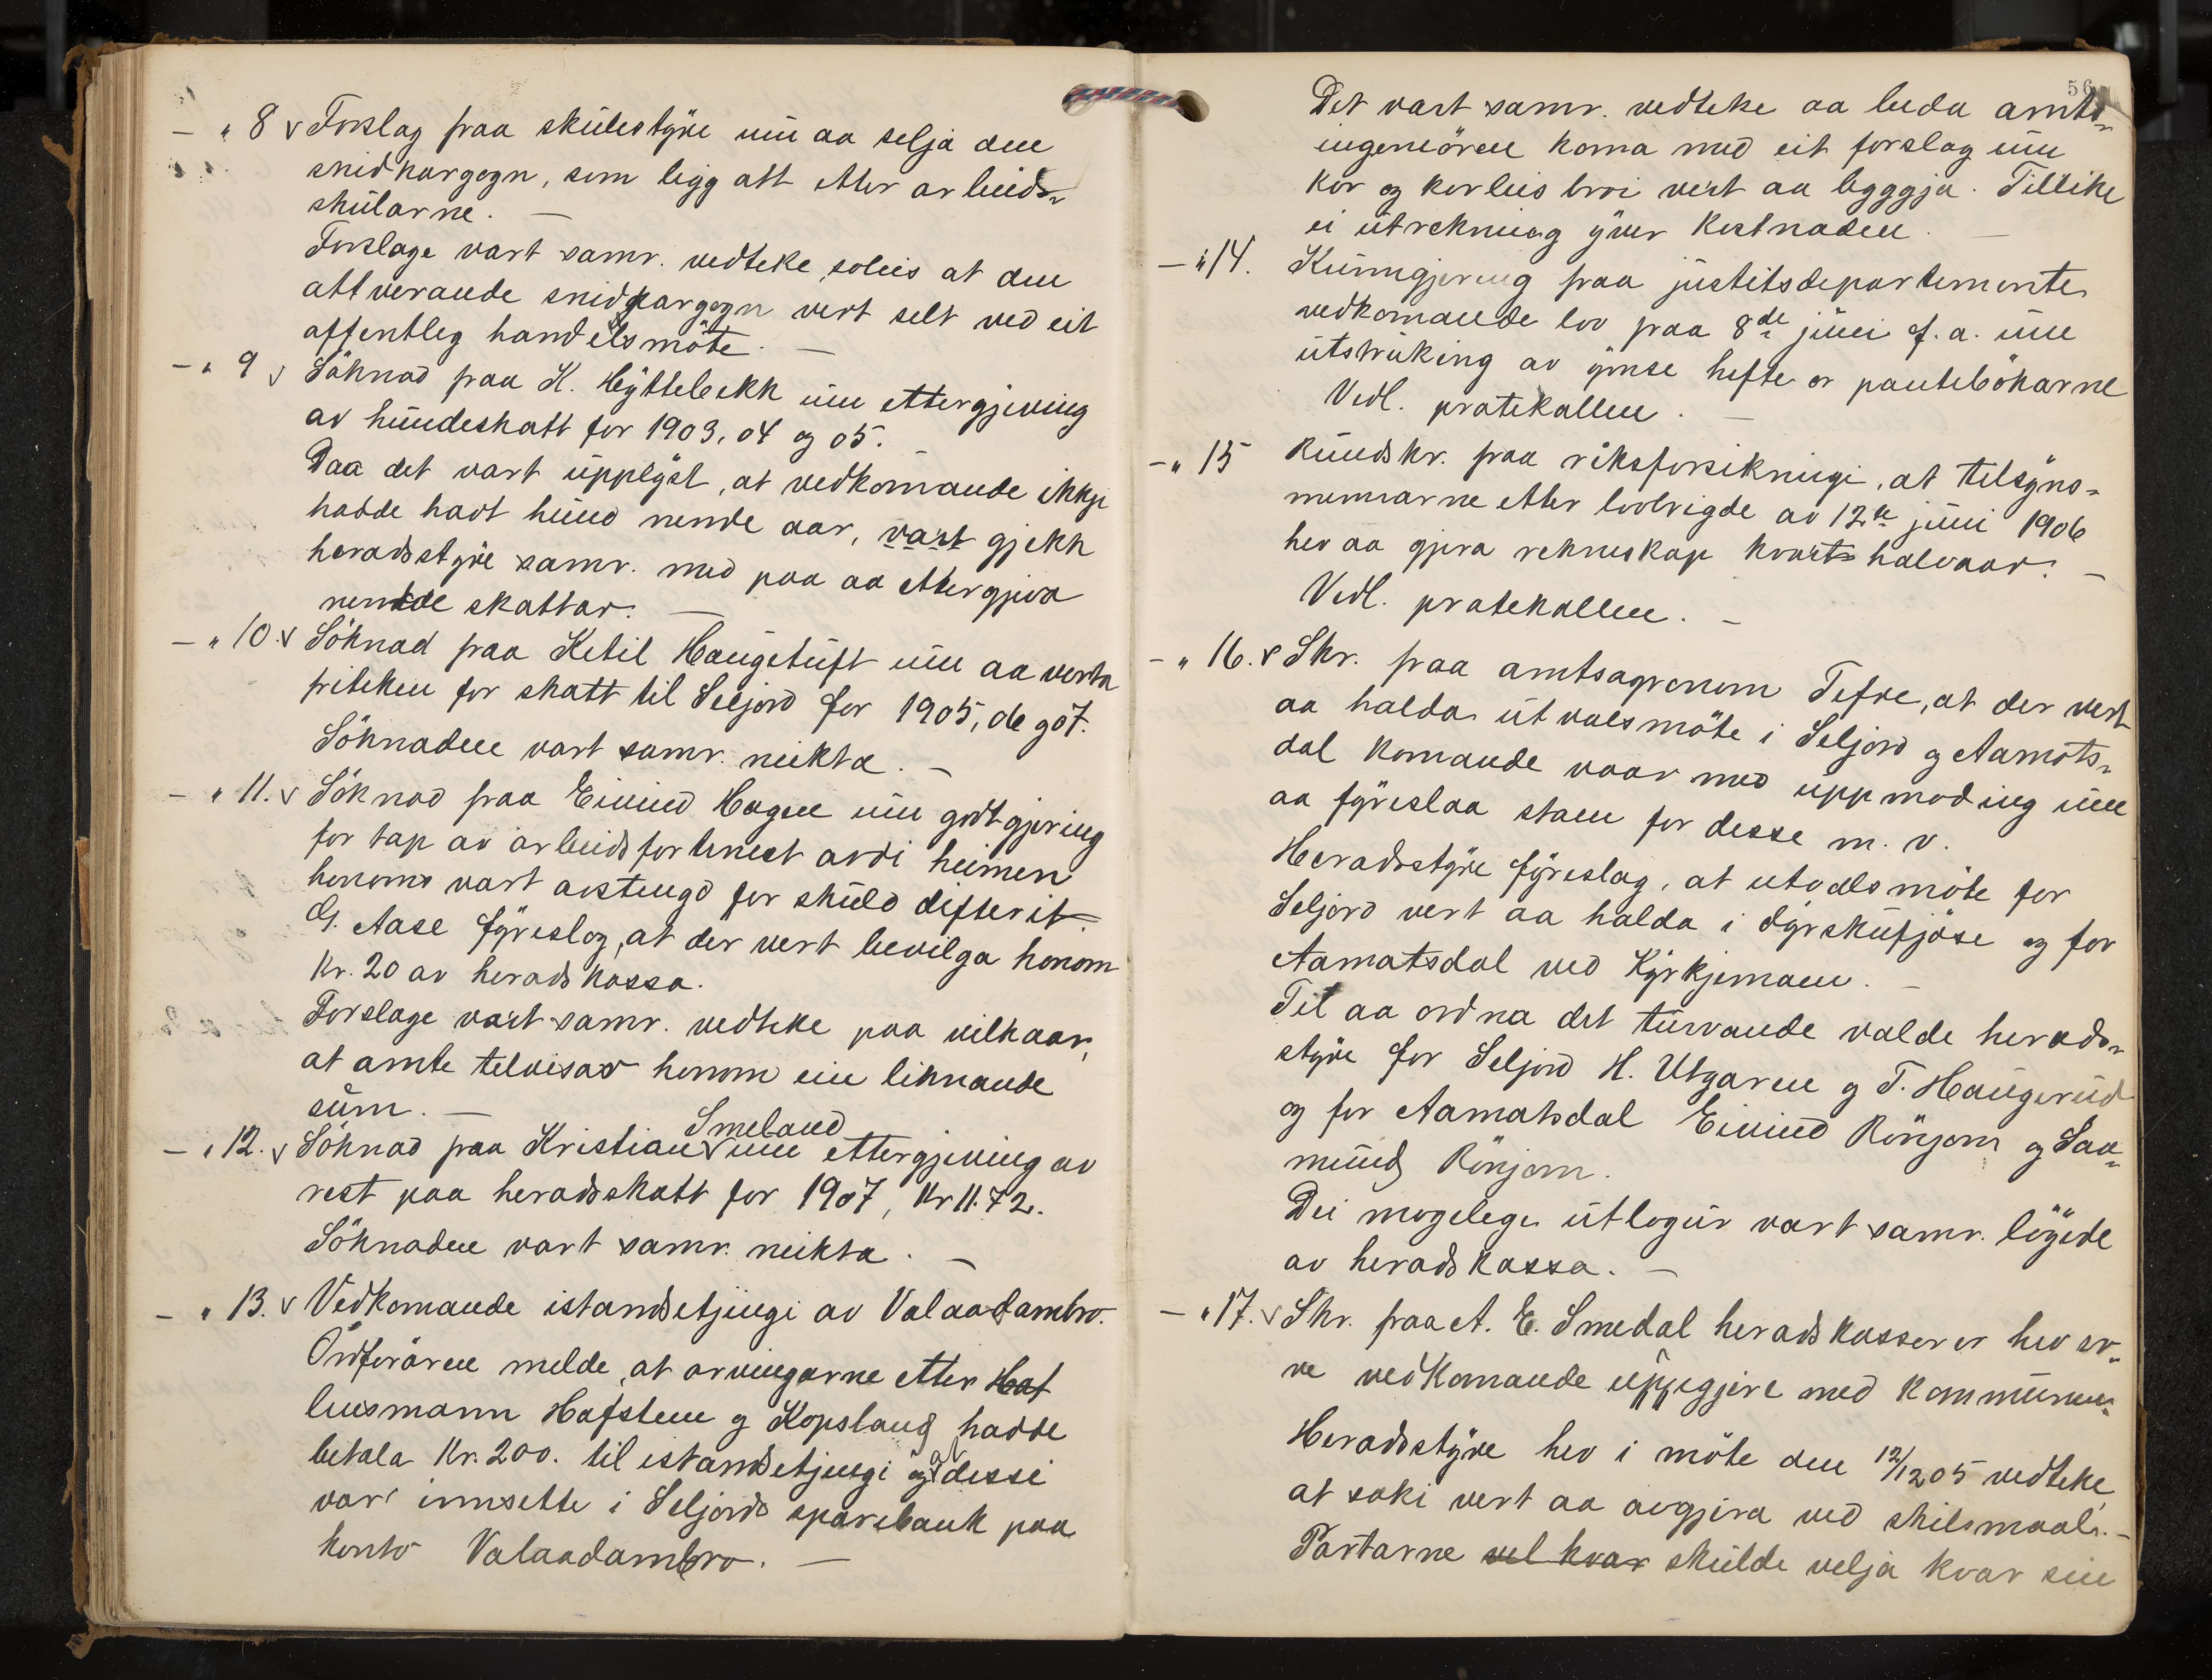 - " 8 v Forslag fraa skulestyre um aa selja den
snidkargogn, som ligg att etter arbeids-
skularne. -
Forslage vart samr. vedteke soleis at den
attverande snidkargogn vert selt ved eit
offentleg handelsmöte. -
- " 9 v Söknad fraa K. Hyttebekk um ettergjeving
av hundeskatt for 1903, 04 og 05.
Daa det vart upplyst, at vedkomande ikkje
hadde havt hund nemde aar, vart gjekk
heradsstyre samr. med paa aa ettergjeva
nemde skattar. -
- " 10. v Söknad fraa Ketil Haugetuft um aa verta
friteken for skatt til Seljord for 1905, 06 og 07.
Söknaden vart samr. neikta. -
- " 11. v Söknad fraa Eivind Hagen um godtgjering
for tap av arbeidsfortenest avdi heimen
honoms vart avstengd for skuld difterit.
G. Aase fyreslog, at der vert bevilga honom
Kr. 20 av heradskassa.
Forslage vart samr. vedteke paa vilkaar,
at amte telvisar honom ein liknande
sum. -
Smeland
- " 12. v Söknad fraa Kristian v um ettergjeving av
rest paa heradsskatt for 1907, Kr 11.72.
Söknaden vart samr. neikta. -
- " 13. v Vedkomande istandsetjingi av Valaadambro.
Ordföraren melde, at arvingarne etter Haf
lensmann Hafsten og Kopsland hadde
betala Kr. 200. til istandsetjingi og at dessi
var innsette i Seljords sparebank paa
konto Valaadambro. -
56
Det vart samr. vedteke aa beda amts-
ingeniören koma med eit forslag um
kor og korleis broi vert aa leggja. Tillike
ei utrekning yver kostnaden. -
- " 14. Kunngjering fraa justitsdepartemente
vedkomande lov fraa 8de juni f. a. um
utstruking av ymse hefte or pantebökarne
Vedl. protokollen. -
- " 15 Rundskr. fraa riksforsikringi, at tilsyns-
mennarne etter lovbrigde av 12te juni 1906
hev aa gjera rekneskap kvart halvaar. -
Vedl. protokollen. -
- " 16. v Skr. fraa amtsagronom Tefre, at der vert
aa halda utvalsmöte i Seljord og Aamots-
dal komande vaar med uppmoding um
aa fyreslaa stam for desse m. v.
Heradsstyre fyreslog, at utvalsmöte for
Seljord vert aa halda i dyrskufjöse og for
Aamotsdal ved Kyrkjemoen. -
Til aa ordna det turvande valde herads-
styre for Seljord H. Utgaren og T. Haugerud
og for Aamotsdal Eivind Rönjom og Saa-
mund Rönjom.
Dei mogelege utlogur vart samr. löyvde
av heradskassa. -
- " 17. v Skr. fraa A. E. Smedal heradskasserer hev er-
ve vedkomande uppgjere med kommunen.
Heradsstyre hev i möte den 12/12 05 vedteke,
at saki vert aa avgjera ved skilsmaal. -
Partarne vel kvar skulde velja kvar sin